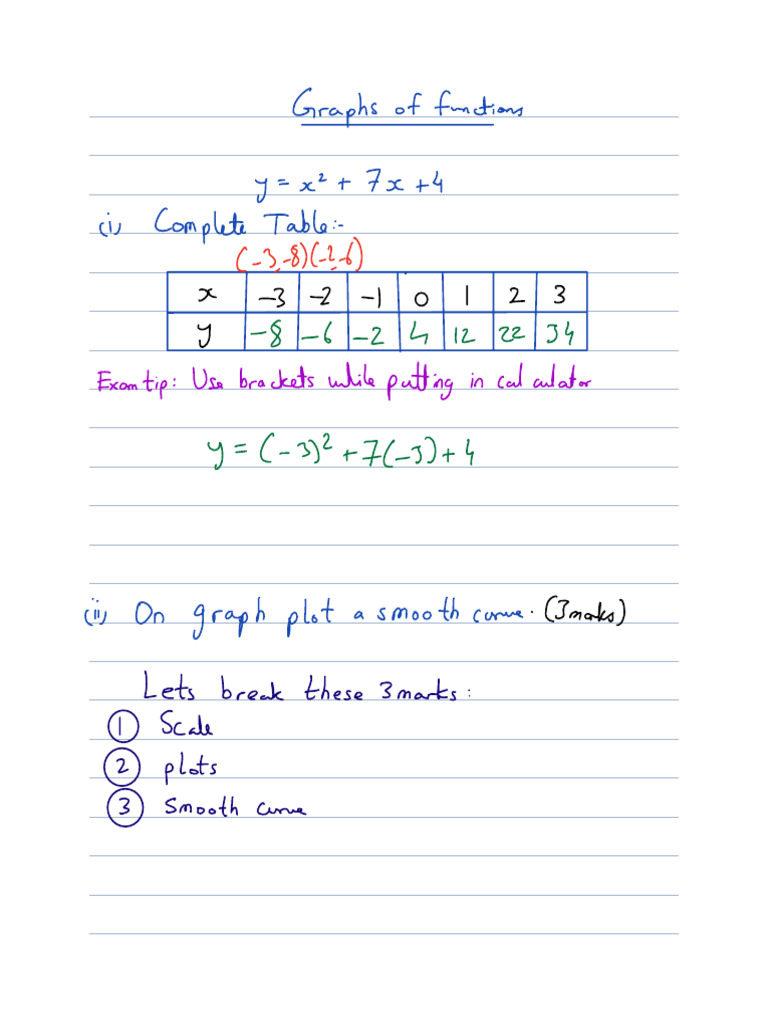 Graphs of functions
y = x² + 7x + 4
(i) Complete Table:-
(-3,-8)(-2,-6)
x -3 -2 -1 0 1 2 3
y -8 -6 -2 4 12 22 34
Exam tip: Use brackets while putting in calculator
y = (-3)² + 7(-3) + 4
(ii) On graph plot a smooth curve. (3 maks)
Lets break these 3 marks:
1 Scale
2 plots
3 Smooth curve